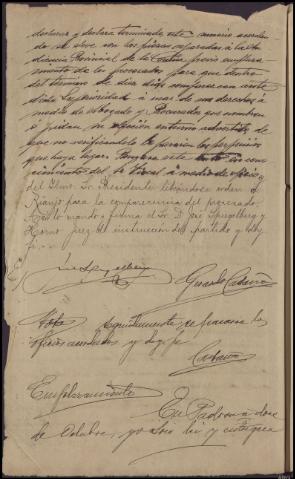 declarar y declara terminado este sumario acordan-
do se eleve con las piezas separadas á la Au-
diencia Provincial de la Coruña previo emplaza-
miento de los procesados para que dentro
del termino de diez dias comparezcan ante
dicha Superioridad á usar de sus derechos á
medio de Abogado y Procurador que nombren
ó pidan su eleccion en turno advertidos de
que no verificandolo les pararán los perjuicios
que haya lugar. Pongase este en cono-
cimiento del Sr Fiscal á medio de oficio
del Iltmo. Sr. Presidente librándose orden á
Rianjo para la comparecencia del procesado.
Así lo mandó y firma el Sr. D. José Spiegelberg y
Horno juez de instruccion del partido y doy
fé.
Gerardo
Nota Seguidamente se pasaron los
oficios acordados y doy fe
Emplazamiento En Padron á doce
de Octubre, yo Srio lei y entregué